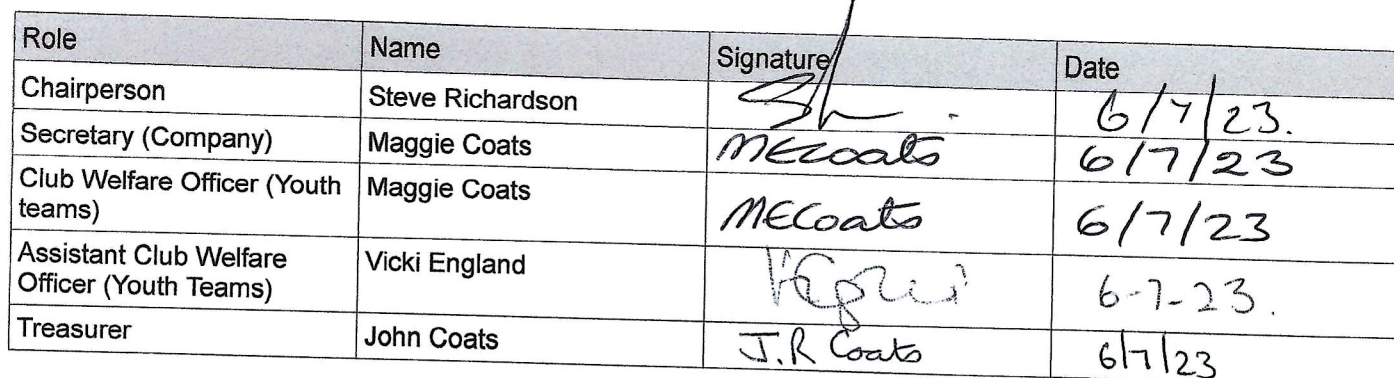 Role Name Signature Date
Chairperson Steve Richardson 6/7/23.
Secretary (Company) Maggie Coats MECoats 6/7/23
Club Welfare Officer (Youth teams) Maggie Coats MECoats 6/7/23
Assistant Club Welfare Officer (Youth Teams) Vicki England 6-7-23.
Treasurer John Coats J.R Coats 6/7/23